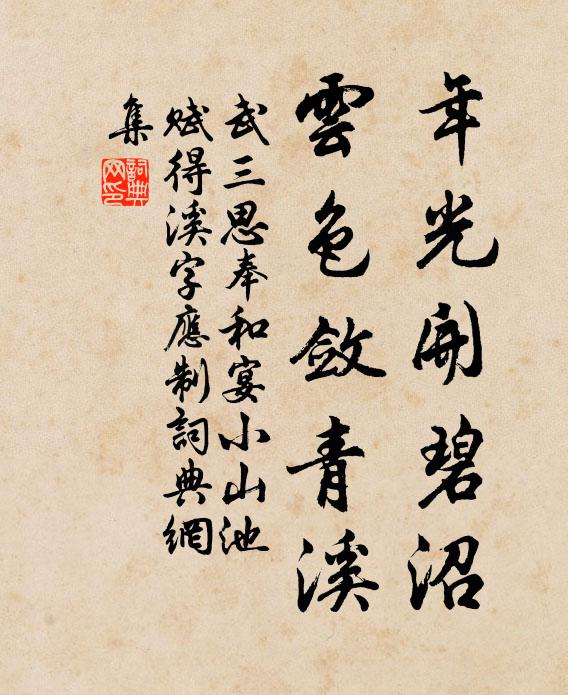 年光開碧沼
雲色斂青溪
武三思奉和宴小山池
賦得溪字應制詞典網
集
詞典網印